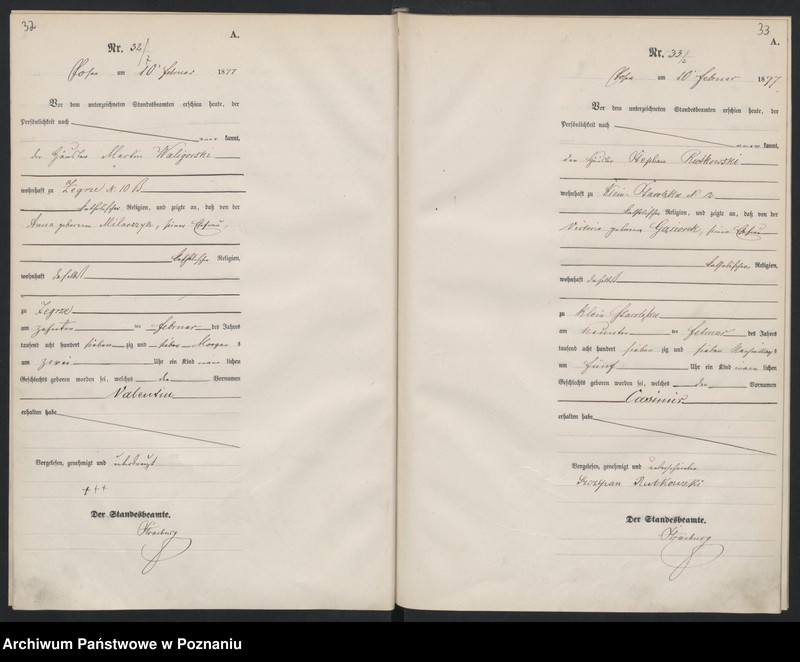 32
A.
Nr. 32
Posen am 10 Februar 1877
Vor dem unterzeichneten Standesbeamten erschien heute, der
Persönlichkeit nach
kannt,
der Häusler Martin Waligorski
wohnhaft zu Zegrze N. 10 B
katholischer Religion, und zeigte an, daß von der
Anna geborenen seiner Ehefrau,
katholischer Religion,
wohnhaft daselbst
zu Zegrze
am zehnten ten Februar des Jahres
tausend acht hundert sieben zig und sieben Morgens
um zwei Uhr ein Kind männ lichen
Geschlechts geboren worden sei, welches den Vornamen
Valentin
erhalten habe
Vorgelesen, genehmigt und
+++
Der Standesbeamte.
33
A.
Nr. 33
Posen am 10 Februar 1877.
Vor dem unterzeichneten Standesbeamten erschien heute, der
Persönlichkeit nach
kannt,
der Stephan Rutkowski
wohnhaft zu Klein Starolenka N. 12
katholischer Religion, und zeigte an, daß von der
geborenen seiner Ehefrau
katholischer Religion,
wohnhaft daselbst
zu Klein Starolenka
am neunten ten Februar des Jahres
tausend acht hundert sieben zig und sieben Nachmittag s
um fünf Uhr ein Kind männ lichen
Geschlechts geboren worden sei, welches den Vornamen
Casimir
erhalten habe
Vorgelesen, genehmigt und unterschrieben
Szczepan Rutkowski
Der Standesbeamte.
Archiwum Państwowe w Poznaniu